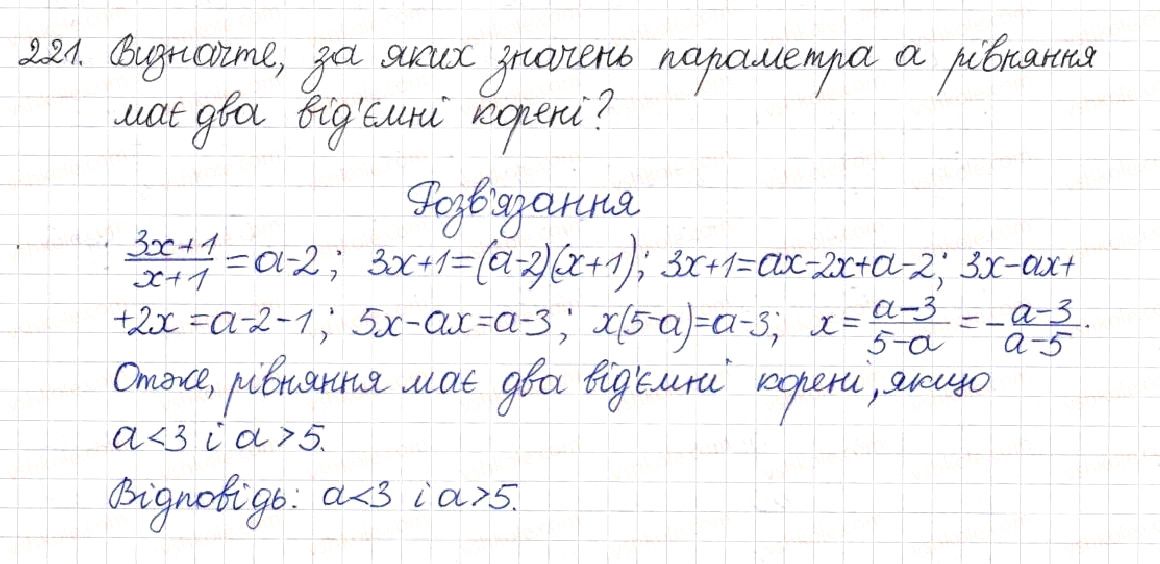 221. Визначте, за яких значень параметра а рівняння
має два від'ємні корені?
Розв'язання
(3x+1)/(x+1) = a-2; 3x+1=(a-2)(x+1); 3x+1=ax-2x+a-2; 3x-ax+
+2x=a-2-1; 5x-ax=a-3; x(5-a)=a-3; x=(a-3)/(5-a)=-(a-3)/(a-5).
Отже, рівняння має два від'ємні корені, якщо
a<3 і a>5.
Відповідь: a<3 і a>5.